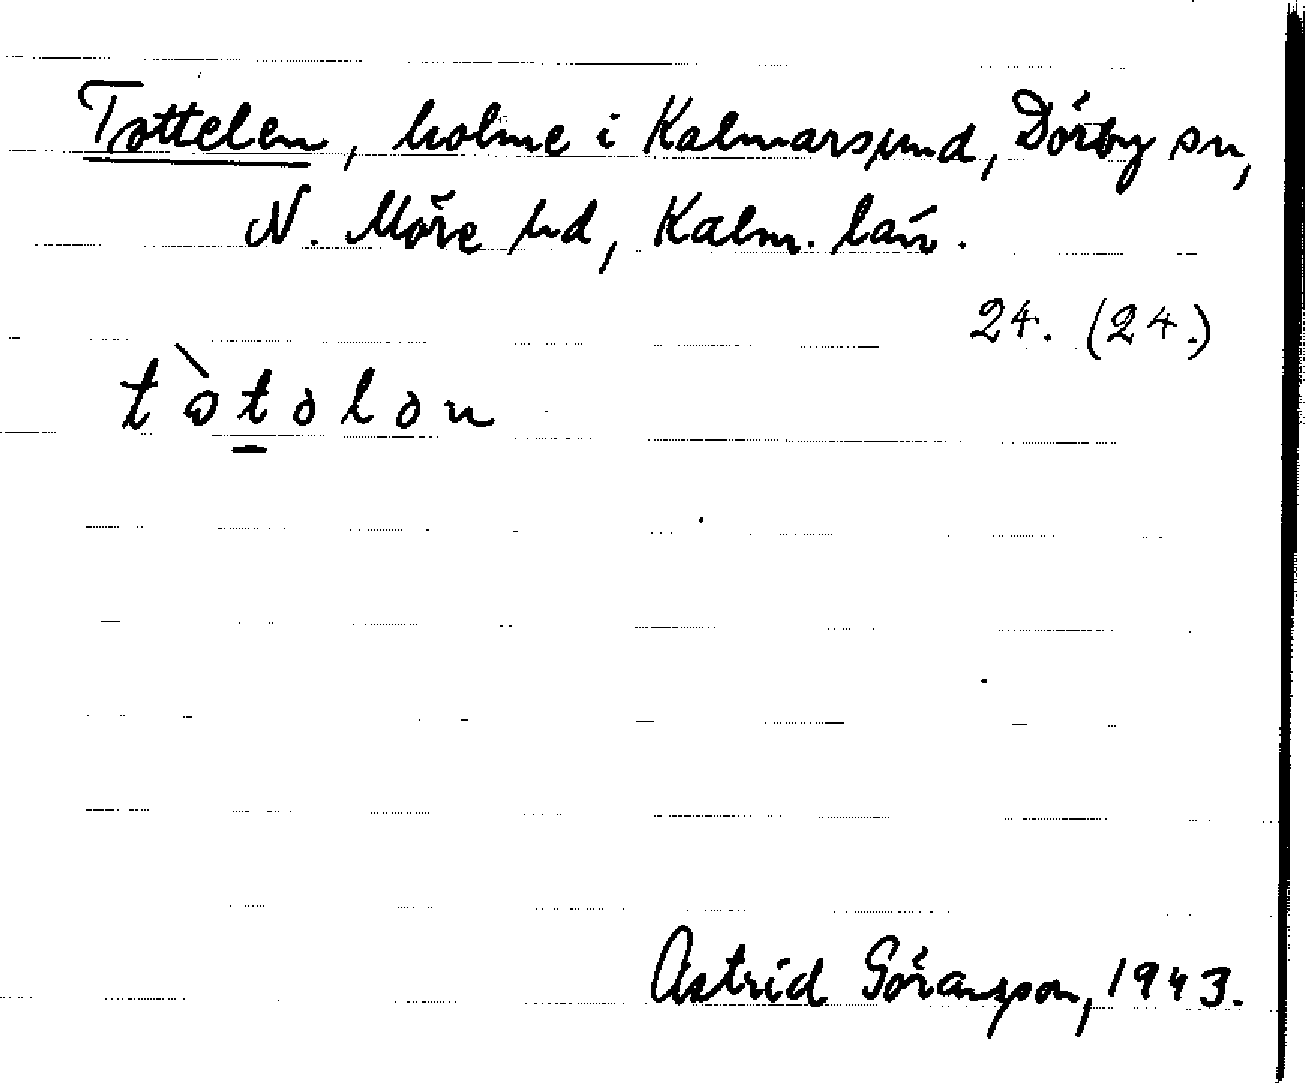 Tottelen, holme i Kalmarsund, Dörby sn,
N. Möre hd, Kalm. län.
24. (24.)
tòtələn
Astrid Göransson, 1943.